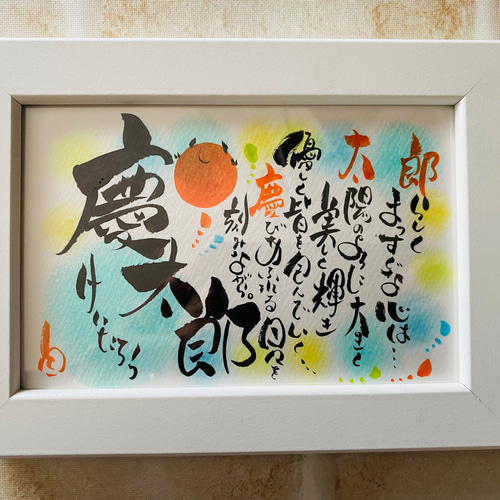 郎らしく
まっすぐな心は…
太陽のように大きく
美しく輝き
優しく皆を包んでいく…
慶びあふれる日々を
刻みながら。
慶太郎
けいたろう